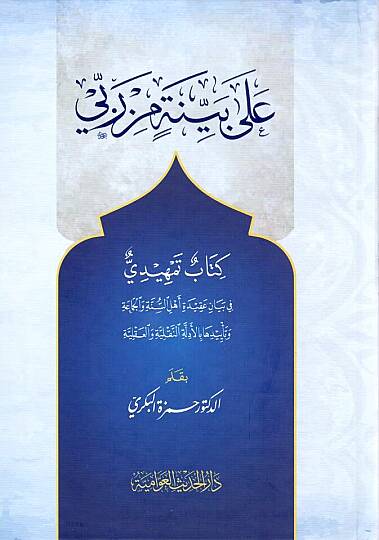 عَلَى بَيِّنَةٍ مِنْ رَبِّي
كِتَابٌ تَمْهِيدِيٌّ
فِي بَيَانِ عَقِيدَةِ أَهْلِ السُّنَّةِ وَالْجَمَاعَةِ
وَتَأْيِيدِهَا بِالْأَدِلَّةِ النَّقْلِيَّةِ وَالْعَقْلِيَّةِ
بِقَلَم
الدكتور حمزة البكري
دَارُ الْحَدِيثِ الْعَوَّامِيَّة